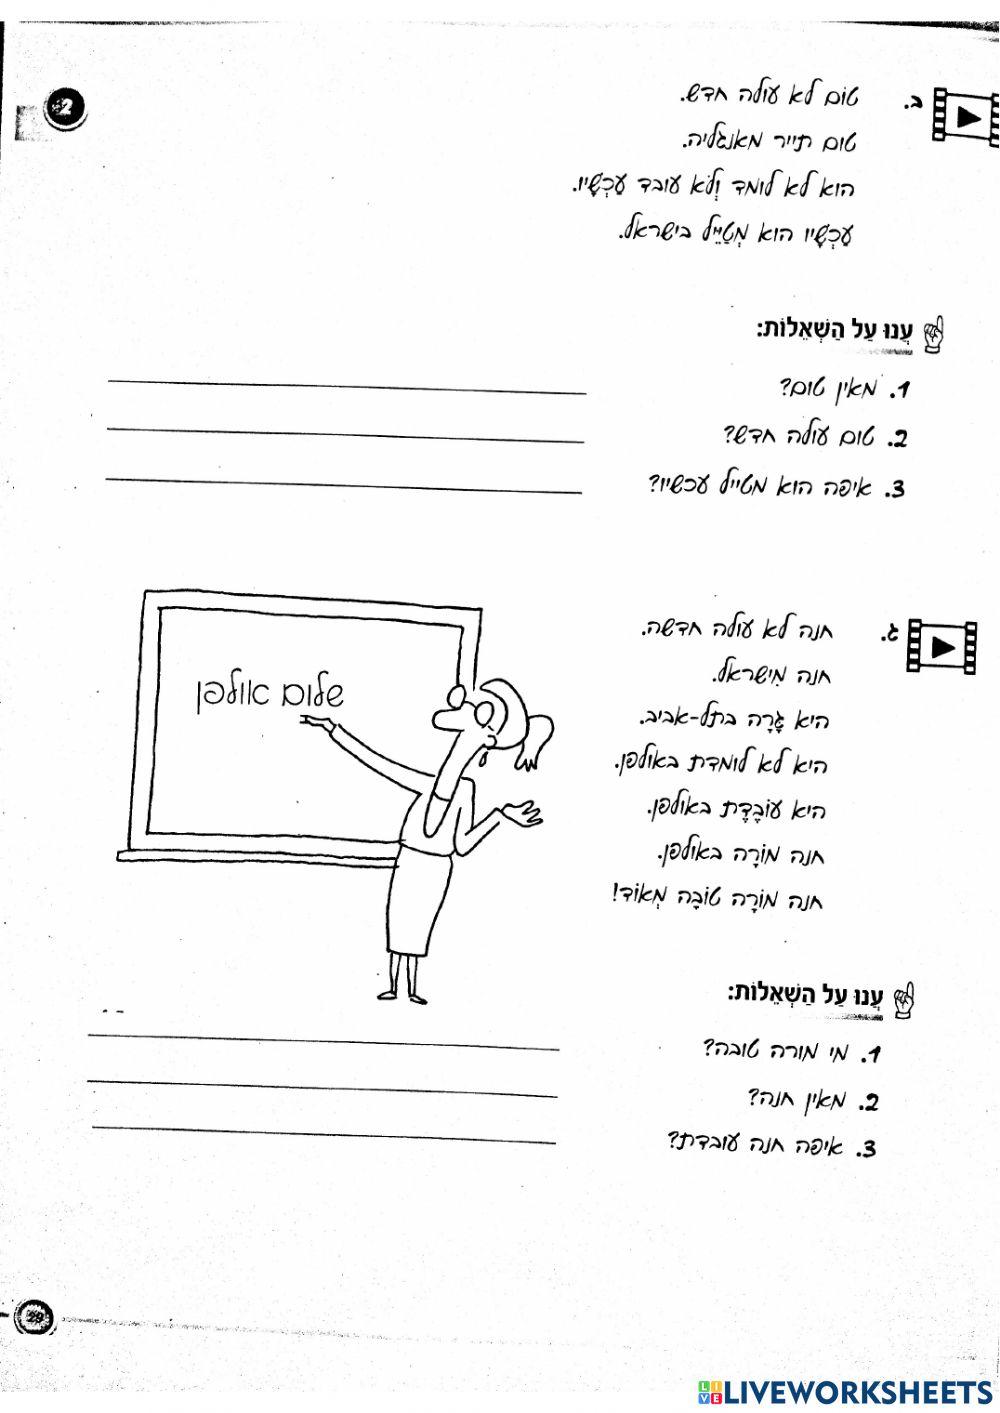 2
ב.
טוֹם לא עולה חדש.
טום תייר מאנגליה.
הוא לא לומד וְלֹא עובד עַכְשָׁיו.
עַכְשָׁיו הוא מְטַיֵּיל בישראל.
עֲנוּ עַל הַשְּׁאֵלוֹת:
1. מאין טום?
2. טום עולה חדש?
3. איפה הוא מטייל עכשיו?
ג.
חנה לא עולה חדשה.
חנה מִישראל.
היא גָּרָה בתל-אביב.
היא לא לומדת באולפן.
היא עוֹבֶדֶת באולפן.
חנה מוֹרָה באולפן.
חנה מוֹרָה טוֹבָה מְאוֹד!
שלום אולפן
עֲנוּ עַל הַשְּׁאֵלוֹת:
1. מי מורה טובה?
2. מאין חנה?
3. איפה חנה עובדת?
29
LIVEWORKSHEETS